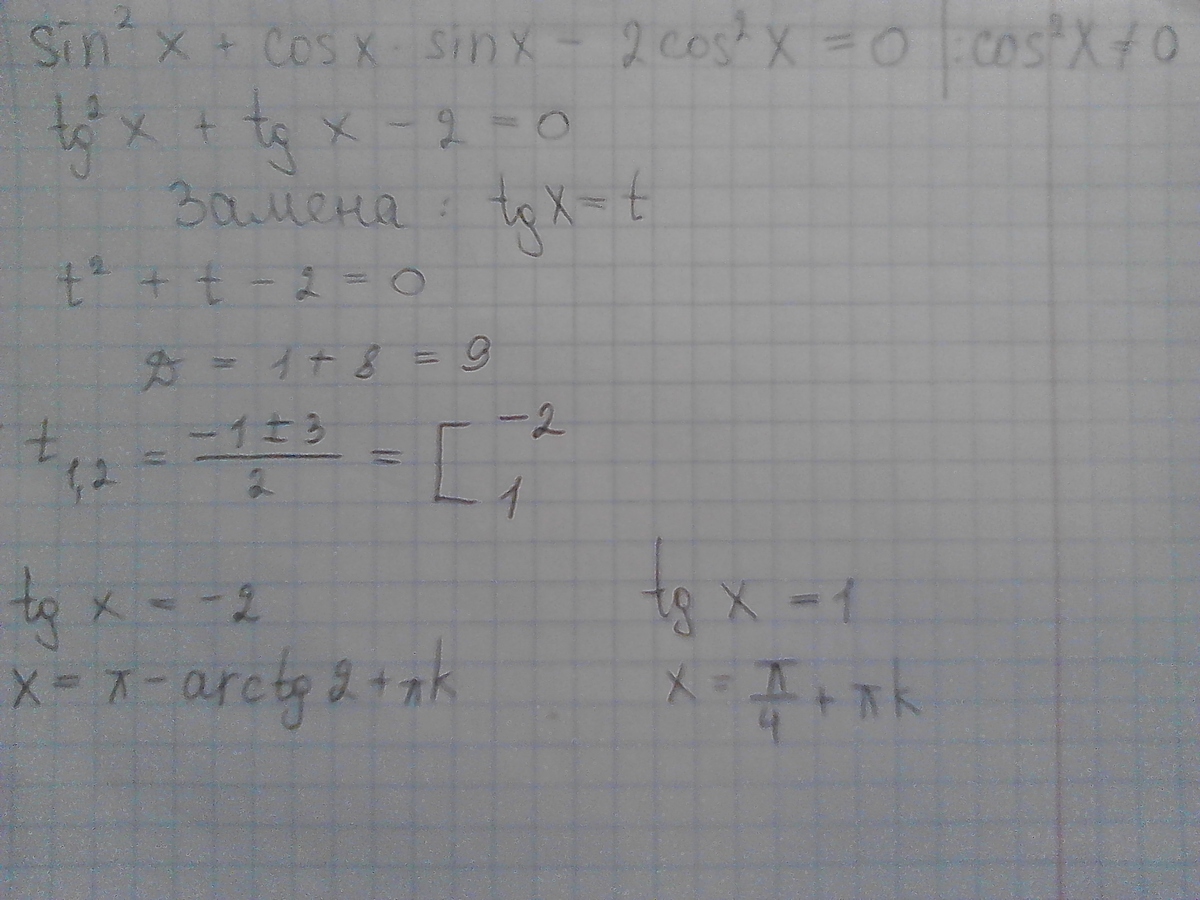 sin² x + cos x · sin x - 2 cos² x = 0 | : cos² x ≠ 0
tg² x + tg x - 2 = 0
Замена : tg x = t
t² + t - 2 = 0
D = 1 + 8 = 9
t₁,₂ = (-1 ± 3)/2 = [ -2 1
tg x = -2 tg x = 1
x = π - arctg 2 + πk x = π/4 + πk